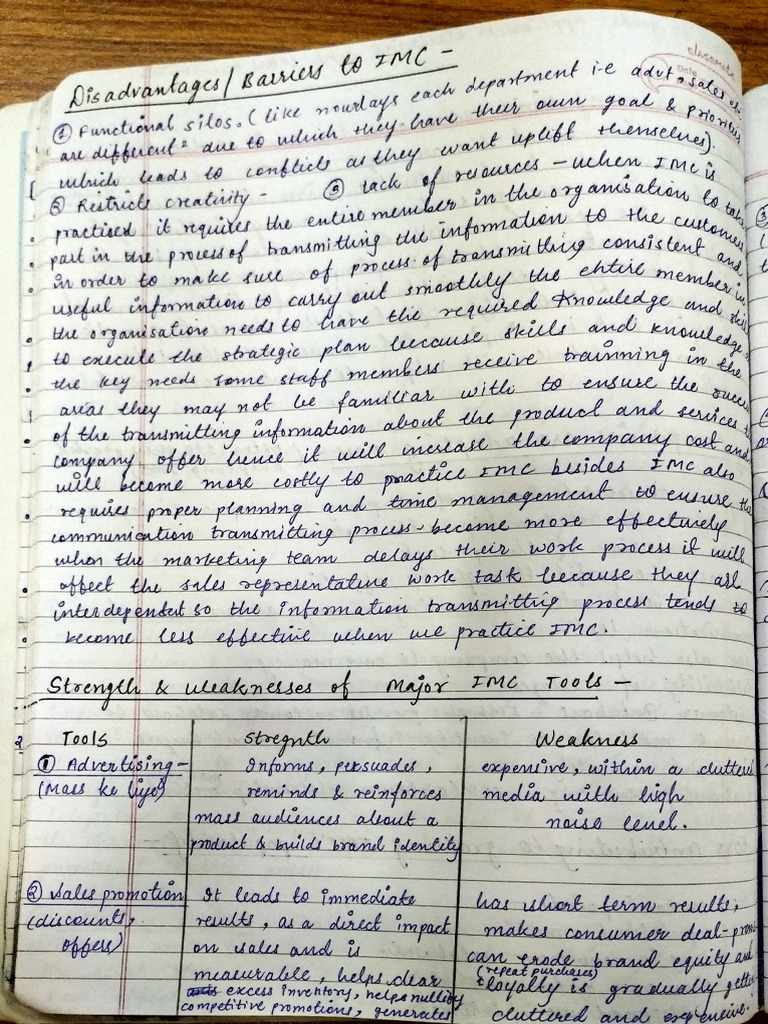 classmate
Date
Disadvantages/ Barriers to IMC -
① Functional silos. (like nowdays each department i.e advt, sales etc
are different² due to which they have their own goal & priorities
which leads to conflicts as they want uplift themselves).
② Restricts creativity - ③ Lack of resources - when IMC is
practised it requires the entire member in the organisation to take
part in the process of transmitting the information to the customers
in order to make sure of process of transmitting consistent and
useful information to carry out smoothly the entire member in
the organisation needs to have the required knowledge and skill
to execute the strategic plan because skills and knowledge
the key needs some staff members receive trainning in the
areas they may not be familiar with to ensure the success
of the transmitting information about the product and services
company offer hence it will increase the company cost and
will become more costly to practice IMC besides IMC also
requires proper planning and time management to ensure the
communication transmitting process become more effectively
when the marketing team delays their work process it will
affect the sales representative work task because they are
interdependent so the information transmitting process tends to
become less effective when we practice IMC.
Strength & Weaknesses of Major IMC Tools -
Tools Stregnth Weakness
① Advertising - Informs, persuades, expensive, within a cluttered
(Mass ke liye) reminds & reinforces media with high
mass audiences about a noise level.
product & builds brand identity
② Sales promotion It leads to immediate has short term results,
(discounts, results, as a direct impact makes consumer deal-prone
offers) on sales and is can erode brand equity and
measurable, helps clear (repeat purchases) loyalty is gradually getting
excess inventory, helps nullify cluttered and expensive.
competitive promotions, generates